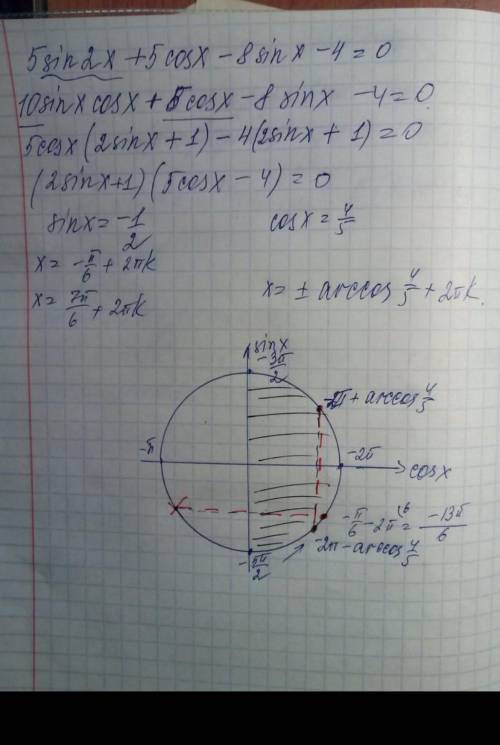 5sin2x + 5cosx - 8sinx - 4 = 0
10sinxcosx + 5cosx - 8sinx - 4 = 0
5cosx(2sinx + 1) - 4(2sinx + 1) = 0
(2sinx+1)(5cosx - 4) = 0
sinx = -1/2
cosx = 4/5
x = -π/6 + 2πk
x = 7π/6 + 2πk
x = ± arccos 4/5 + 2πk
sinx
-3π/2
-2π + arccos 4/5
-π
-2π
cosx
-π/6 - 2π = -13π/6
-2π - arccos 4/5
-5π/2